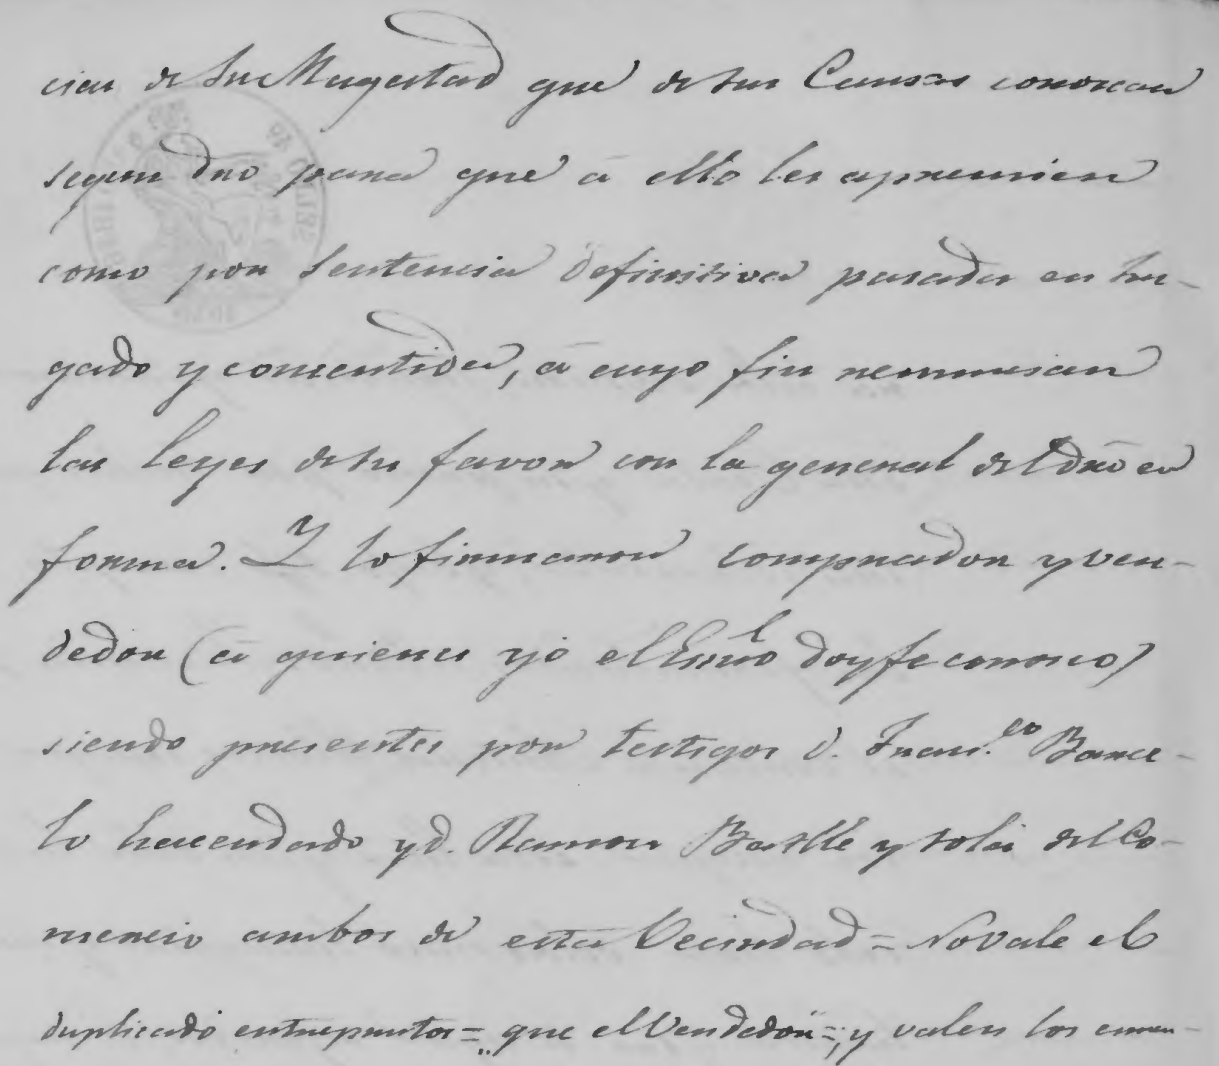 cias de Su Magestad que de sus Causas conoscan
segun dro para que á ello les apremien
como por Sentencia definitiva pasada enJu-
gado y consentida, á cuyo fin renuncian
las leyes de su favor con la general del dro en
forma. Y lo firmaron comprador y ven-
dedor (á quienes yo el Essno doy fe conosco)
siendo presentes por testigos D. Fran.co Barce-
lo hacendado y D. Ramon Batlle y Solá del Co-
mercio ambos de esta Vecindad = No vale el
duplicado entrepuntos = que el Vendedor =, y valen los enmen-